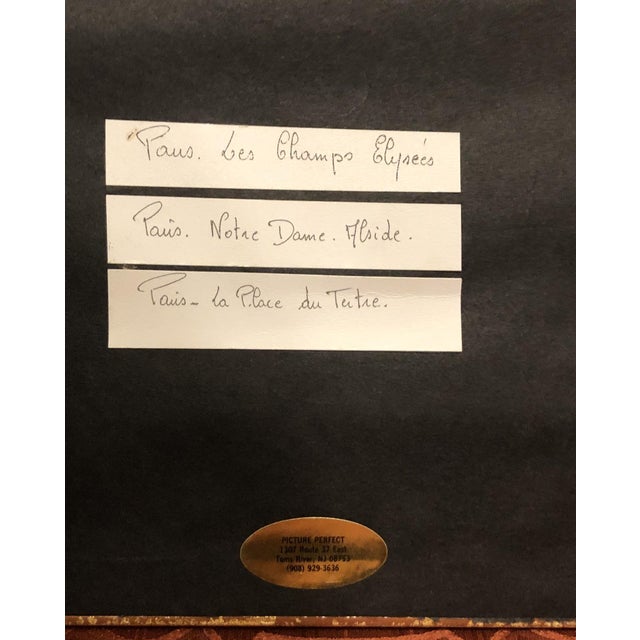 Paris. Les Champs Elysées
Paris. Notre Dame. Abside.
Paris - La Place du Tertre.
PICTURE PERFECT
1307 Route 37 East
Toms River, NJ 08753
(908) 929-3636